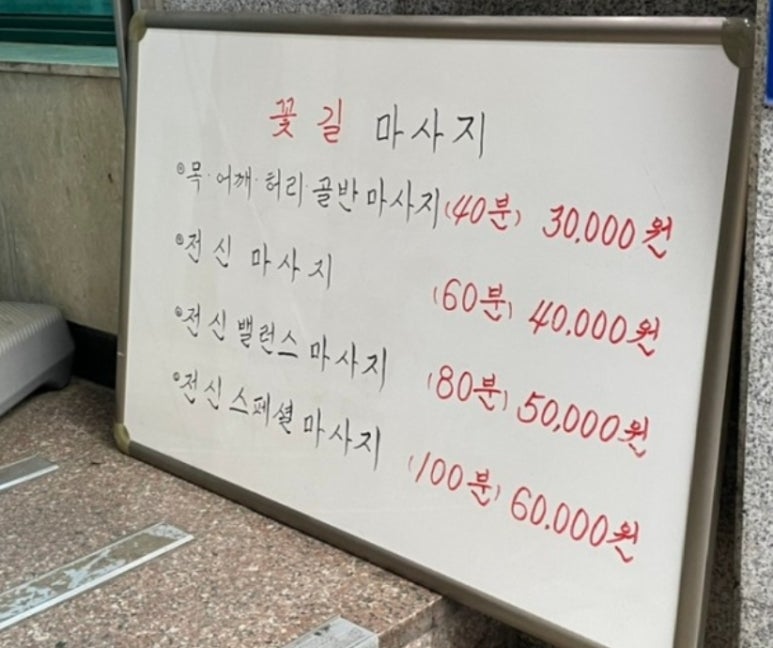 꽃길 마사지
목·어깨·허리·골반마사지(40분) 30,000원
전신 마사지 (60분) 40,000원
전신밸런스마사지 (80분) 50,000원
전신스페셜마사지 (100분) 60.000원